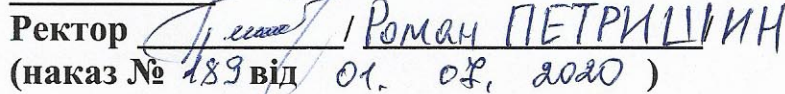 Ректор / Роман ПЕТРИШИН
(наказ № 189 від 01. 07. 2020 )